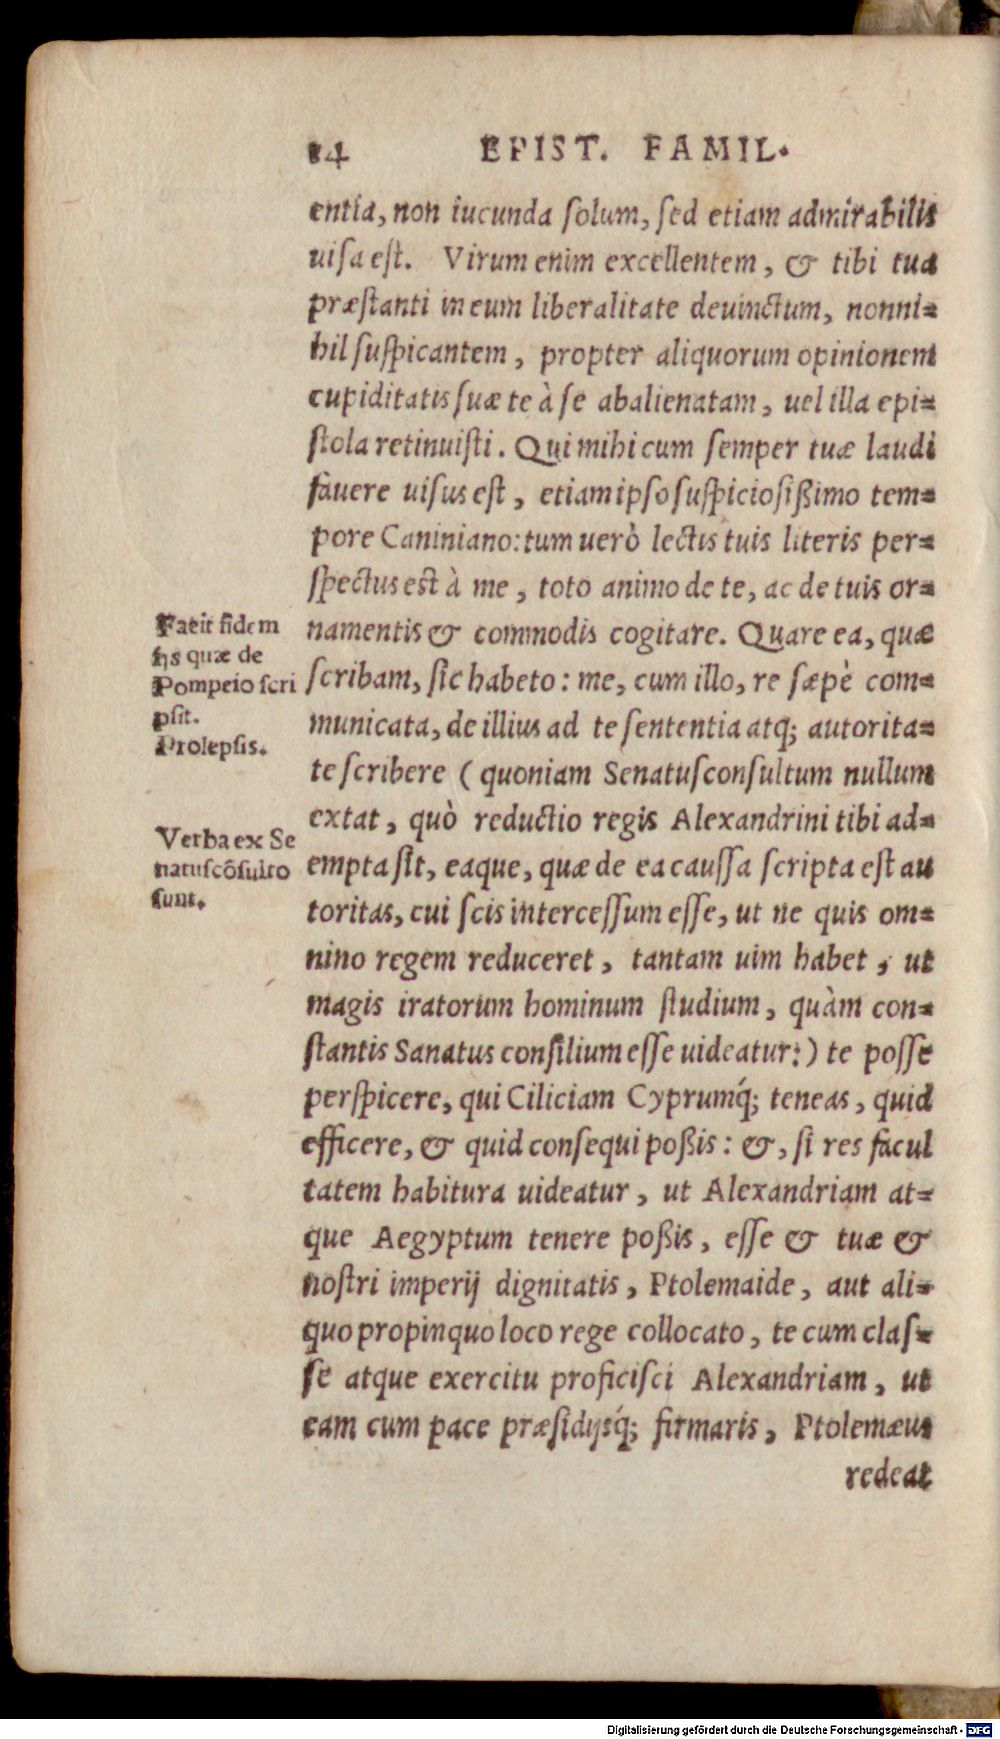 14 EPIST. FAMIL.
entia, non iucunda solum, sed etiam admirabilis
uisa est. Virum enim excellentem, & tibi tua
præstanti in eum liberalitate deuinctum, nonni=
hil suspicantem, propter aliquorum opinionem
cupiditatis suæ te à se abalienatam, uel illa epi=
stola retinuisti. Qui mihi cum semper tuæ laudi
fauere uisus est, etiam ipso suspiciosißimo tem=
pore Caniniano: tum uerò lectis tuis literis per=
spectus est à me, toto animo de te, ac de tuis or=
namentis & commodis cogitare. Quare ea, quæ
scribam, sic habeto: me, cum illo, re sæpè com=
municata, de illius ad te sententia atq; autorita=
te scribere (quoniam Senatusconsultum nullum
extat, quò reductio regis Alexandrini tibi ad=
empta sit, eaque, quæ de ea caussa scripta est au
toritas, cui scis intercessum esse, ut ne quis om=
nino regem reduceret, tantam uim habet, ut
magis iratorum hominum studium, quàm con=
stantis Sanatus consilium esse uideatur:) te posse
perspicere, qui Ciliciam Cyprumq́; teneas, quid
efficere, & quid consequi poßis: &, si res facul
tatem habitura uideatur, ut Alexandriam at=
que Aegyptum tenere poßis, esse & tuæ &
nostri imperij dignitatis, Ptolemaide, aut ali=
quo propinquo loco rege collocato, te cum clas=
se atque exercitu proficisci Alexandriam, ut
eam cum pace præsidijsq́; firmaris, Ptolemæus
redeat
Facit fidem
ijs quæ de
Pompeio scri
psit.
Prolepsis.
Verba ex Se
natuscōsulto
sunt.
Digitalisierung gefördert durch die Deutsche Forschungsgemeinschaft - DFG